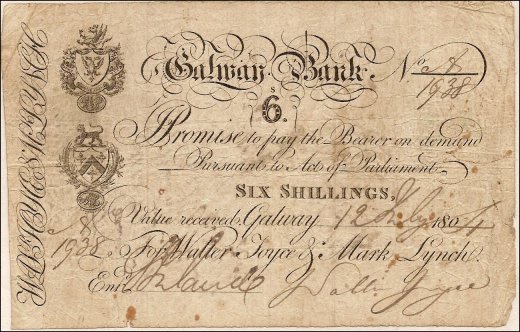 Galway Bank. No. A
1938
6. S
I Promise to pay the Bearer on demand
Pursuant to Acts of Parliament
SIX SHILLINGS,
Value received, Galway 12 July 1804
A 1938
For Walter Joyce & Mark Lynch.
Entd. Walter Joyce